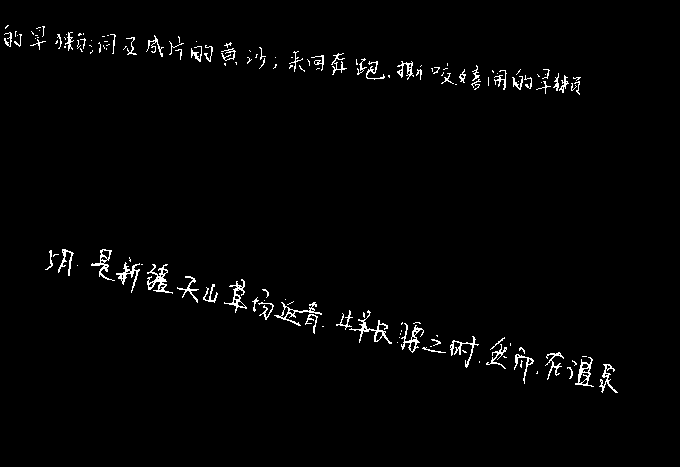 的旱獭洞及成片的黄沙;来回奔跑.撕咬嬉闹的旱獭
5月.是新疆天山草场返青.牛羊长膘之时.然而.在温泉